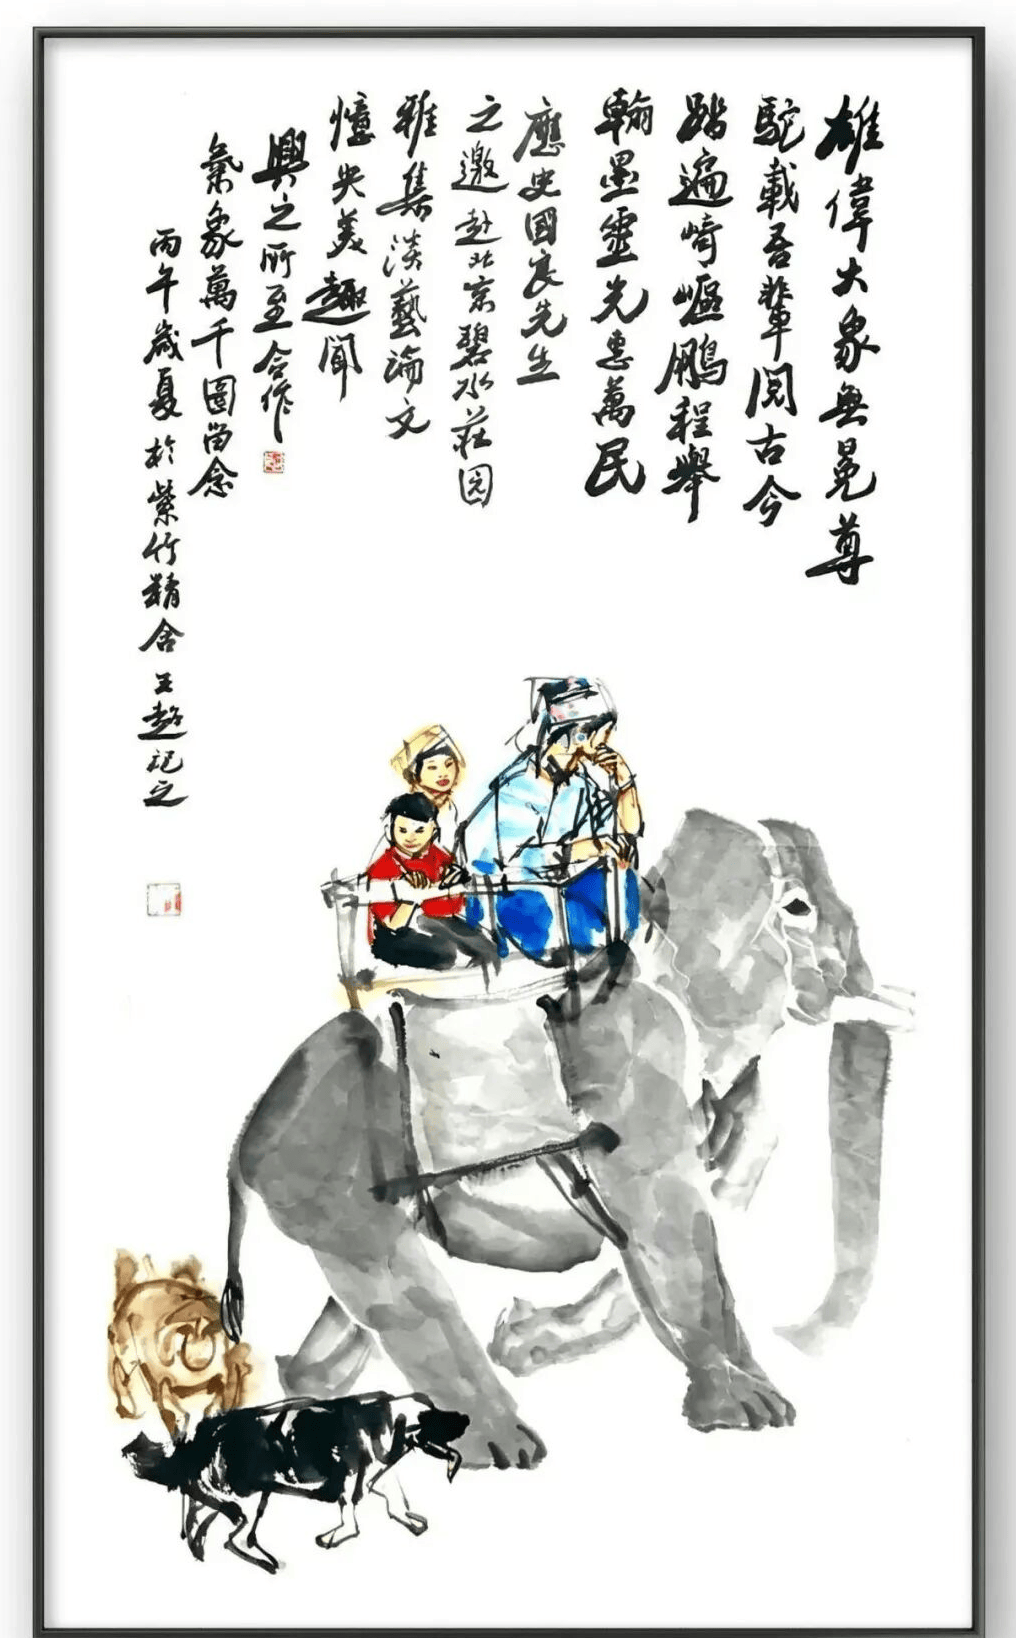 雄偉大象無冕尊
駝載吾輩閱古今
踏遍崎嶇鵬程舉
翰墨靈光惠萬民
應史國良先生
之邀赴北京碧水莊园
雅集淡藝論文
憶央美趣聞
興之所至合作
氣象萬千圖留念
丙午歲夏於紫竹精舍王趁記之